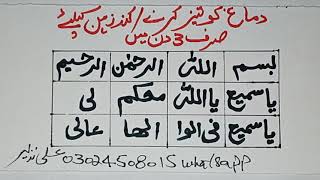 دماغ کو تیز کرنے / کندزہن کیلئے
صرف 3 دن میں
بسم اللہ الرحمٰن الرحیم
یاسمیع یااللہ معکم لی
یاسمیع فی الوا الھا عالی
علی نذیر 03024508015 whatsapp